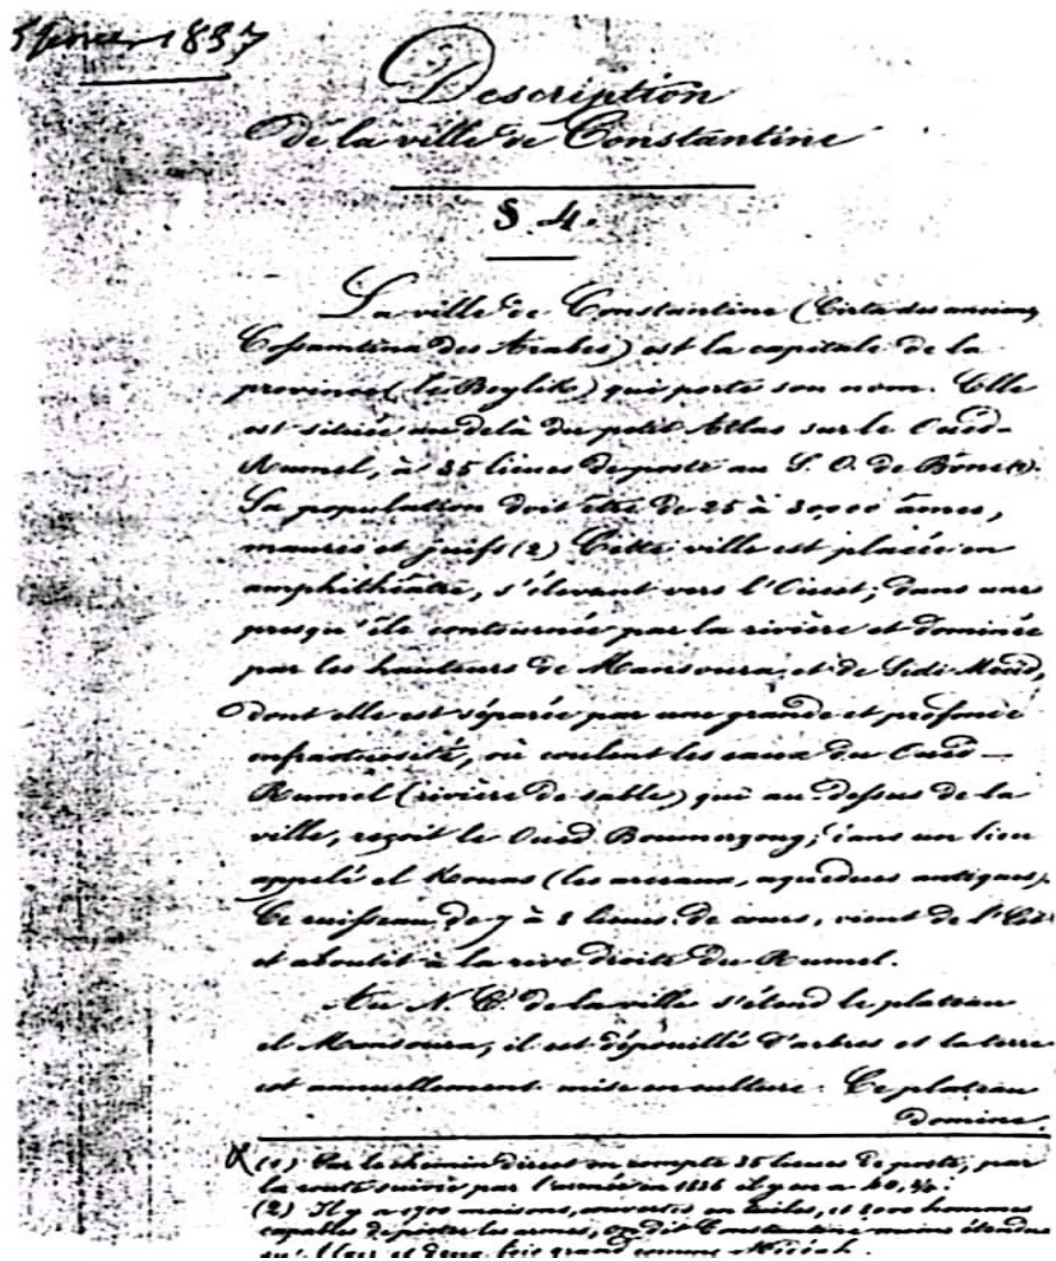 5 février 1837
Description
de la ville de Constantine
§ 4.
La ville de Constantine (Cirta des anciens,
Cossamtina des Arabes) est la capitale de la
province (le Beylik) qui porte son nom. Elle
est située au delà du petit Atlas sur le Oued-
Rumel, à 35 lieues de poste au S. O. de Bône (1).
Sa population doit être de 25 à 30,000 âmes,
maures et juifs (2) Cette ville est placée en
amphithéâtre, s'élevant vers l'Ouest; dans une
presqu'île contournée par la rivière et dominée
par les hauteurs de Mansoura, et de Sidi Mécid,
dont elle est séparée par une grande et profonde
anfractuosité, où coulent les eaux du Oued-
Rumel (rivière de sable) qui au-dessus de la
ville, reçoit le Oued Boumerzoug, dans un lieu
appelé el Kouas (les arceaux, aqueducs antiques).
Ce ruisseau de 7 à 8 lieues de cours, vient de l'Est
et aboutit à la rive droite du Rumel.
Au N. E. de la ville s'étend le plateau
el Mansoura, il est dépouillé d'arbres et la terre
est annuellement mise en culture. Ce plateau
domine
(1) Par le chemin direct on compte 35 lieues de poste, par
la route suivie par l'armée en 1836 il y en a 40, 3/4.
(2) Il y a 1700 maisons, couvertes en tuiles, et 2000 hommes
capables de porter les armes, on dit Constantine moins étendue
qu'Alger et deux fois grand comme Médéah.